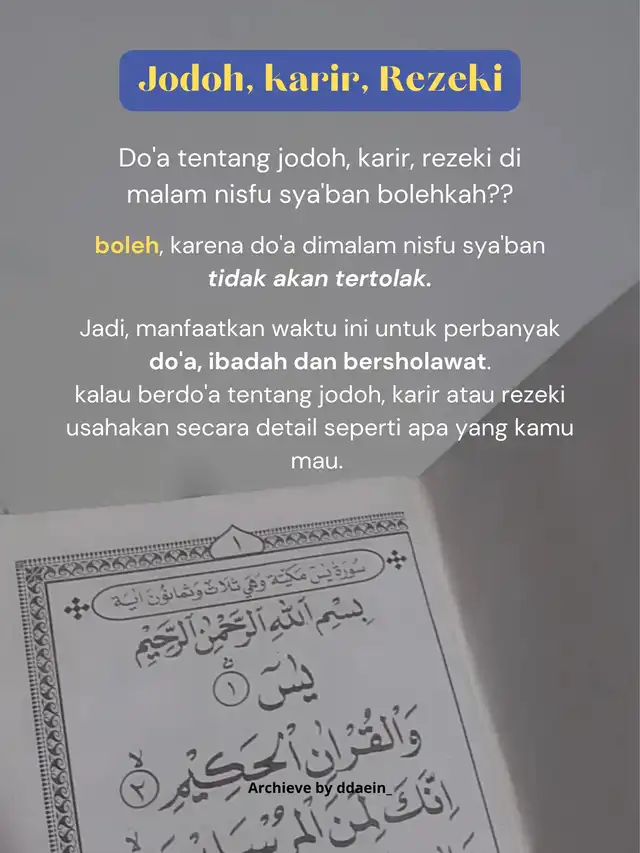 Jodoh, karir, Rezeki
Do'a tentang jodoh, karir, rezeki di
malam nisfu sya'ban bolehkah??
boleh, karena do'a dimalam nisfu sya'ban
tidak akan tertolak.
Jadi, manfaatkan waktu ini untuk perbanyak
do'a, ibadah dan bersholawat.
kalau berdo'a tentang jodoh, karir atau rezeki
usahakan secara detail seperti apa yang kamu
mau.
١
سُوْرَةُ يٰسٓ مَكِّيَّةٌ وَهِيَ ثَلَاثٌ وَثَمَانُوْنَ اٰيَةً
بِسْمِ اللهِ الرَّحْمٰنِ الرَّحِيْمِ
يٰسٓ ١
وَالْقُرْاٰنِ الْحَكِيْمِ ٢
Archieve by ddaein_
اِنَّكَ لَمِنَ الْمُرْسَلِيْنَ